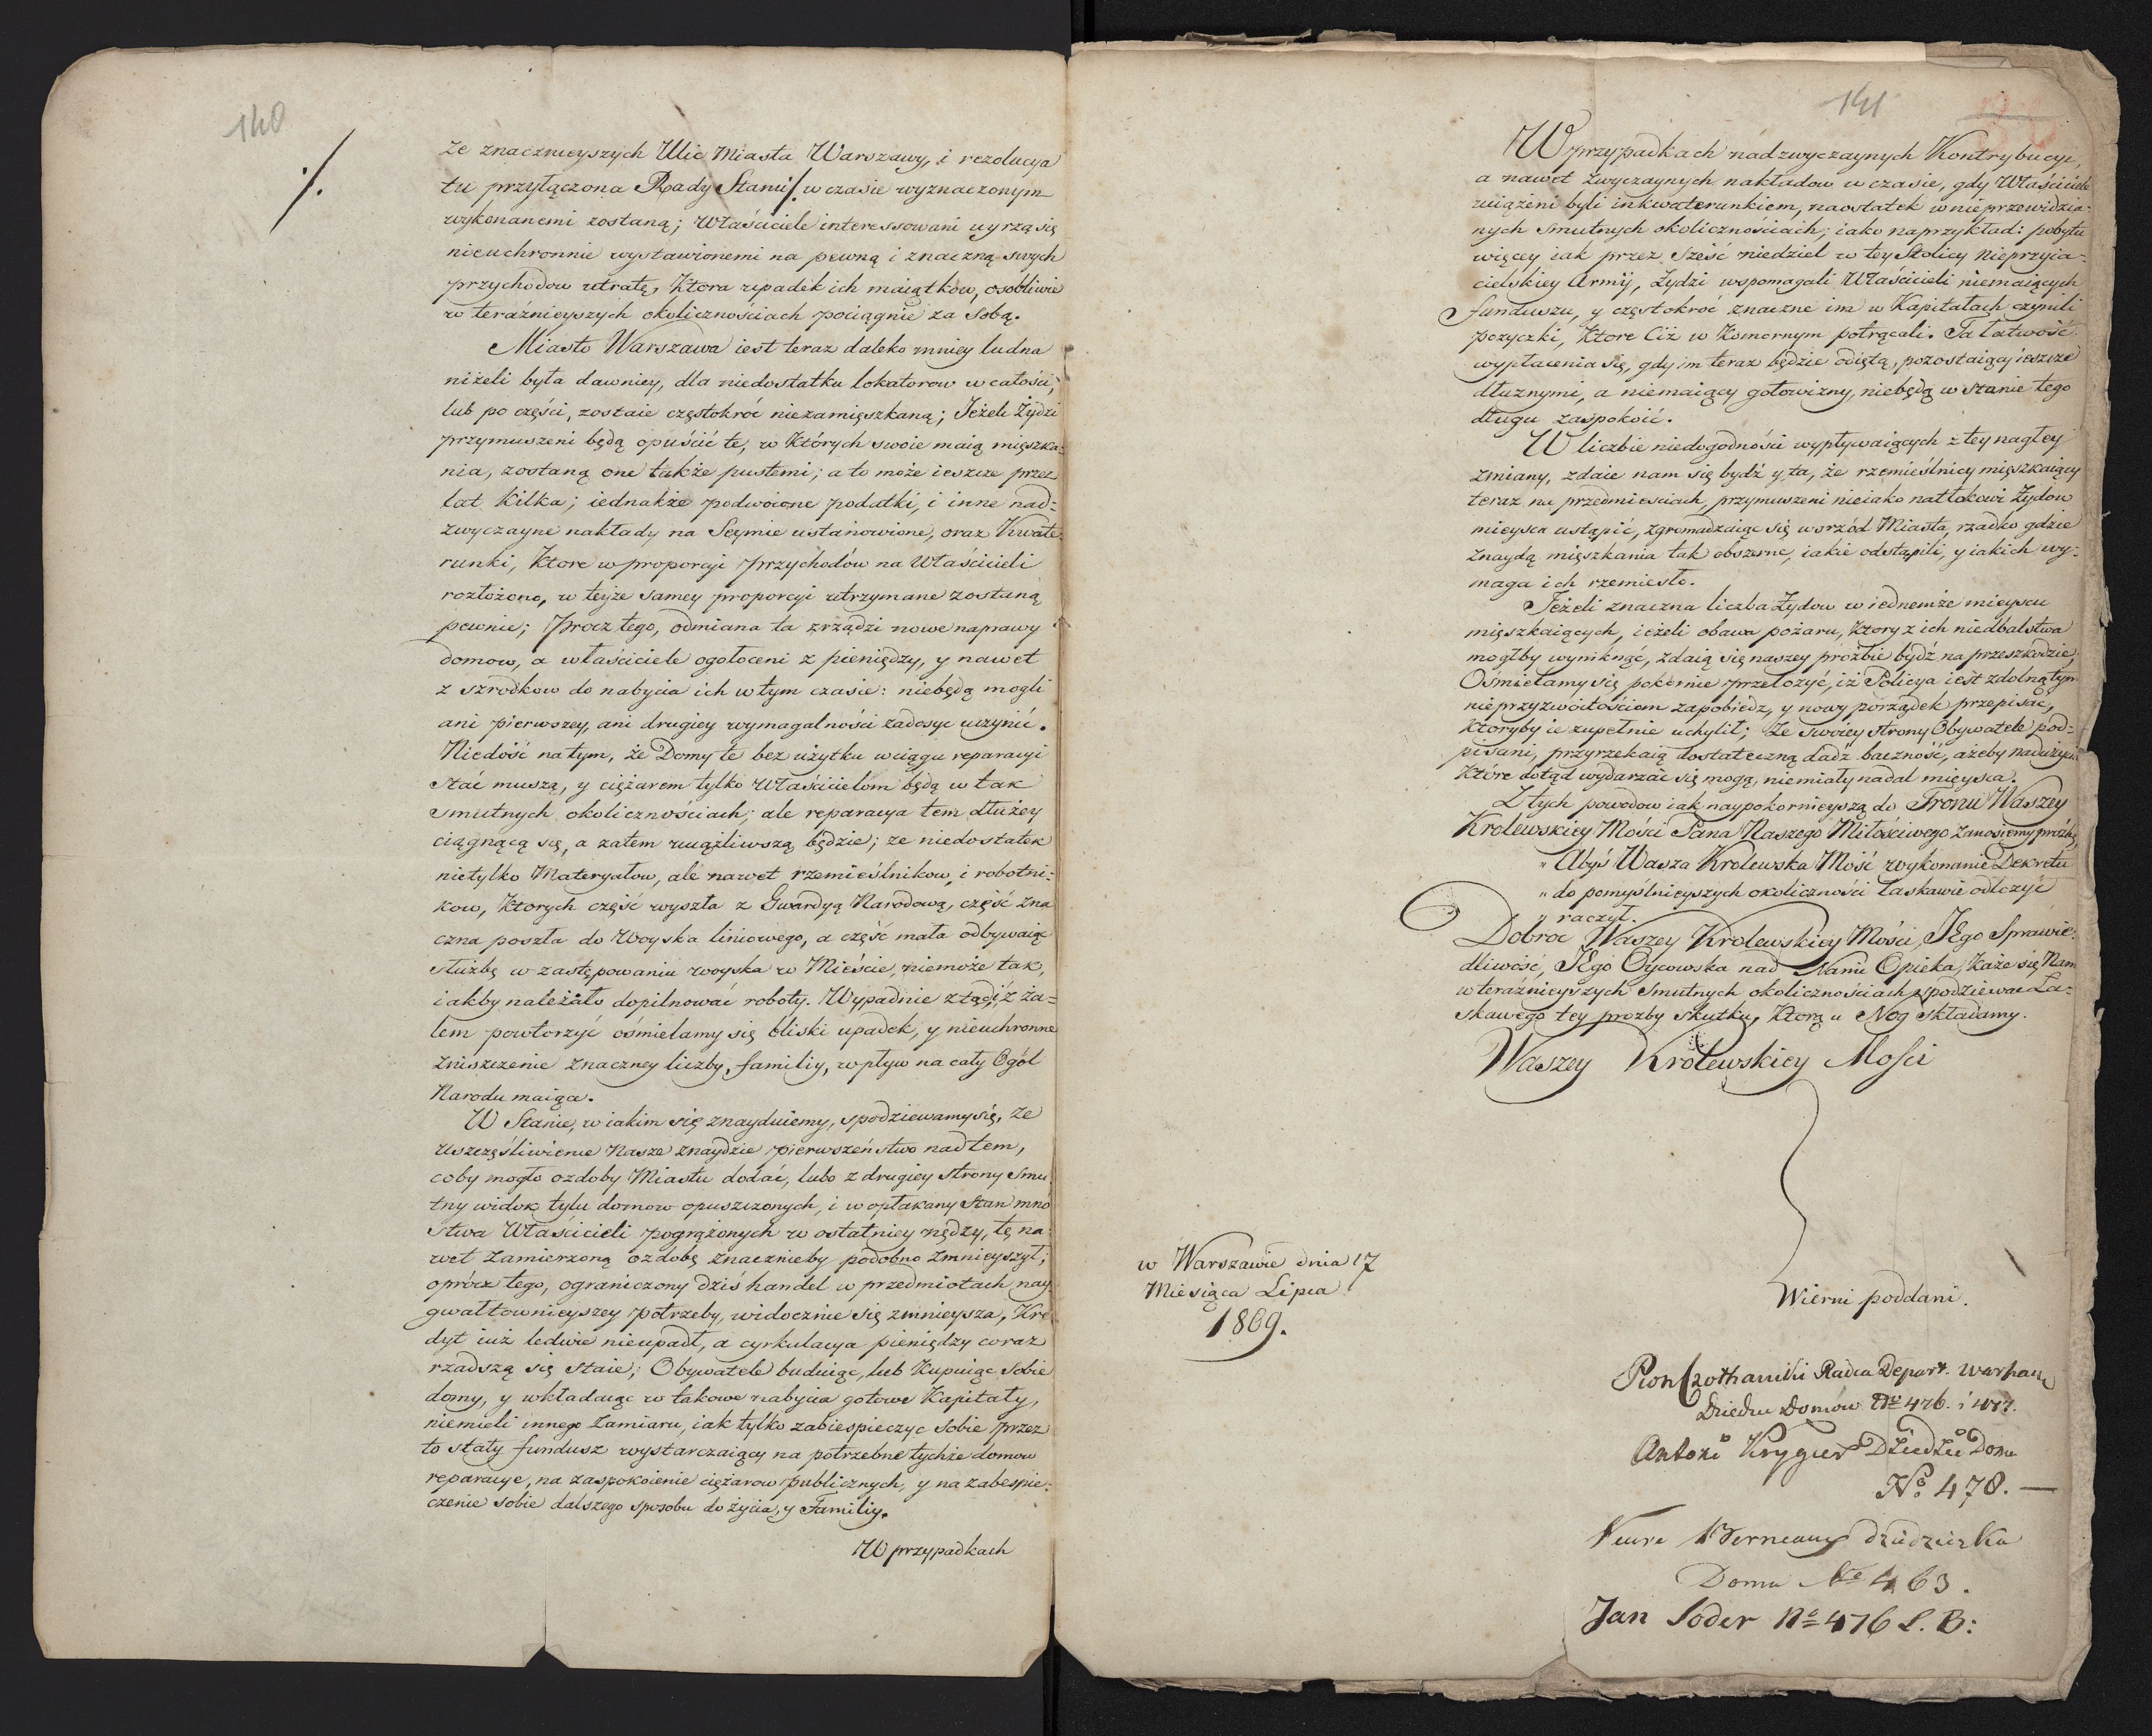 140
./.
ze znacznieyszych Ulic Miasta Warszawy, i rezolucya
tu przyłączona Rady Stanu ./. w czasie wyznaczonym
wykonanemi zostaną; Właściciele interessowani uyrzą się
nieuchronnie wystawionemi na pewną i znaczną swych
przychodow utratę, Ktora upadek ich maiątkow, osobliwie
w teraźnieyszych okolicznościach pociągnie za sobą.
Miasto Warszawa iest teraz daleko mniey ludna
niżeli była dawniey, dla niedostatku lokatorow w całości,
lub po części, zostaie częstokróć niezamięszkaną; Jeżeli Żydzi
przymuszeni będą opuścić te, w Których swoie maią mięszka=
nia, zostaną one także pustemi; a to może ieszcze przez
lat Kilka; iednakże podwoione podatki, i inne nad=
zwyczayne nakłady na Seymie ustanowione, oraz Kwate=
runki, Ktore w proporcyi przychodów na Właścicieli
rozłożone, w teyże samey proporcyi utrzymane zostaną
pewnie; Procz tego, odmiana ta zrządzi nowe naprawy
domow, a właściciele ogołoceni z pieniędzy, y nawet
z szrodkow do nabycia ich w tym czasie: niebędą mogli
ani pierwszey, ani drugiey wymagalności zadosyc uczynić.
Niedość na tym, że Domy te bez użytku w ciągu reparacyi
stać muszą, y ciężarem tylko Właścicielom będą w tak
smutnych okolicznościach; ale reparacya tem dłużey
ciągnącą się, a zatem uciążliwszą będzie; ze niedostatek
nietylko Materyałow, ale nawet rzemieślnikow, i robotni=
kow, Ktorych część wyszła z Gwardyą Narodową, część zna
czna poszła do Woyska liniowego, a część mała odbywaiąc
służbę w zastępowaniu woyska w Mieście, niemoże tak,
iakby należało dopilnować roboty. Wypadnie ztąd, iż ża=
lem powtorzyć ośmielamy się bliski upadek, y nieuchronne
zniszczenie znaczney liczby familiy, wpływ na cały Ogół
Narodu maiące.
W Stanie, w iakim się znayduiemy, spodziewamy się, ze
uszczęśliwienie Nasze znaydzie pierwszeństwo nad tem,
coby mogło ozdoby Miastu dodać, lubo z drugiey strony smu
tny widok tylu domow opuszczonych, i w opłakany Stan mno
stwa Właścicieli pogrążonych w ostatniey nędzy, tę na=
wet zamierzoną ozdobę znacznieby podobno zmnieyszył;
oprócz tego, ograniczony dziś handel w przedmiotach nay
gwałtownieyszey potrzeby, widocznie się zmnieysza, Kre
dyt iuż ledwie nieupadł, a cyrkulacya pieniędzy coraz
rzadszą się staie; Obywatele buduiąc, lub Kupuiąc sobie
domy, y wkładaiąc w takowe nabycia gotowe Kapitały,
niemieli innego zamiaru, iak tylko zabiespieczyc sobie przez
to stały fundusz wystarczaiący na potrzebne tychże domow
reparacye, na zaspokoienie ciężarow publicznych, y na zabespie=
czenie sobie dalszego sposobu do życia, y Familiy.
W przypadkach
141
W przypadkach nadzwyczaynych Kontrybucyi,
a nawet zwyczaynych nakładow w czasie, gdy Właściciele
uciążeni byli inkwaterunkiem, naostatek w nieprzewidzia=
nych smutnych okolicznościach; iako naprzykład: pobytu
więcey iak przez sześć niedziel w tey Stolicy Nieprzyia=
cielskiey Armij, Żydzi wspomagali Właścicieli niemaiących
funduszu, y częstokroć znaczne im w Kapitałach czynili
pożyczki, Ktore Ciż w Komornym potrącali. Ta łatwość
wypłacenia się, gdy im teraz będzie odiętą, pozostaiący ieszcze
dłużnymi, a niemaiący gotowizny, niebędą w stanie tego
długu zaspokoić.
W liczbie niedogodności wypływaiących z tey nagłey
zmiany, zdaie nam się bydź y ta, że rzemieślnicy mięszkaiący
teraz na przedmiesciach, przymuszeni nieiako natłokowi Żydow
mieysca ustąpić, zgromadzaiąc się wśrzód Miasta, rzadko gdzie
znaydą mięszkania tak obszerne, iakie odstąpili, y iakich wy=
maga ich rzemiesło.
Jeżeli znaczna liczba Żydow w iednemże mieyscu
mięszkaiących, ieżeli obawa pożaru, Ktory z ich niedbalstwa
mogłby wyniknąć, zdaią się naszey proźbie bydź na przeszkodzie;
Ośmielamy się pokornie przełożyć, iż Policya iest zdolną tym
nieprzyzwoitościom zapobiedz, y nowy porządek przepisać,
Ktoryby ie zupełnie uchylił; Ze swoiey strony Obywatele pod=
pisani, przyrzekaią dostateczną dadź baczność, ażeby nadużycia
Które dotąd wydarzać się mogą, niemiały nadal mieysca.
Z tych powodow iak naypokornieyszą do Tronu Waszey
Krolewskiey Mości Pana Naszego Miłościwego zanosiemy proźbę,
" Abyś Wasza Krolewska Mość wykonanie Dekretu
" do pomyślnieyszych okoliczności łaskawie odłożyć
" raczył.
Dobroc Waszey Krolewskiey Mości, JEgo Sprawie=
dliwość, JEgo Oycowska nad Nami Opieka, Każe się Nam
w teraznieyszych smutnych okolicznościach spodziewac Ła=
skawego tey prozby skutku, Ktorą u Nog składamy.
Waszey Królewskiey Mości
w Warszawie dnia 17
Miesiąca Lipca
1809.
Wierni poddani.
Radca Depart.
Dziedzic Domów No 476. i 477.
Antoni Krygier Dziedzic Domu
No. 478. —
Dziedziczka
Domu No 463.
Jan Soder No 476 L. B: